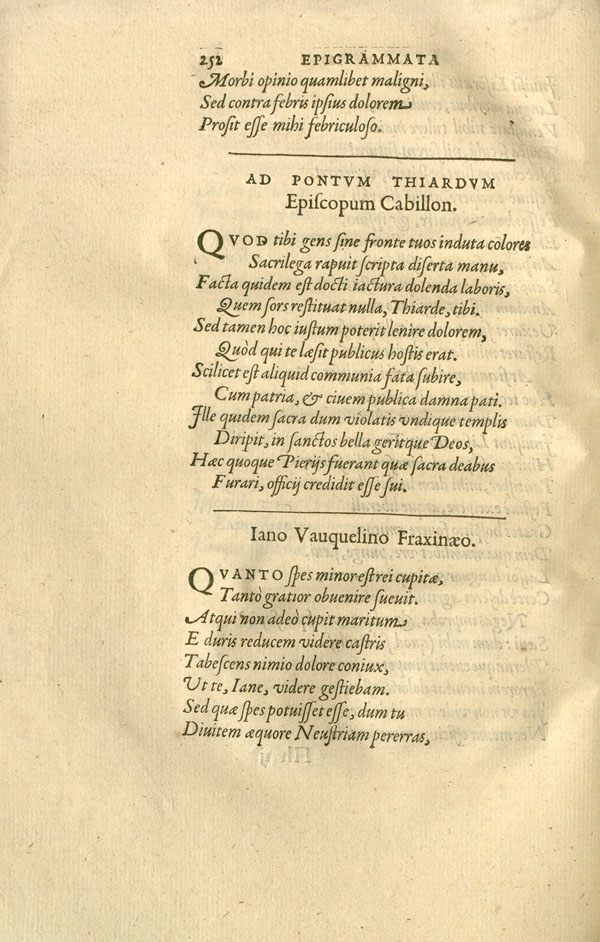 252 EPIGRAMMATA
Morbi opinio quamlibet maligni,
Sed contra febris ipsius dolorem
Prosit esse mihi febriculoso.
AD PONTVM THIARDVM
Episcopum Cabillon.
QVOD tibi gens sine fronte tuos induta colores
Sacrilega rapuit scripta diserta manu,
Facta quidem est docti iactura dolenda laboris,
Quem sors restituat nulla, Thiarde, tibi.
Sed tamen hoc iustum poterit lenire dolorem,
Quòd qui te læsit publicus hostis erat.
Scilicet est aliquid communia fata subire,
Cum patria, & ciuem publica damna pati.
Ille quidem sacra dum violatis vndique templis
Diripit, in sanctos bella geritque Deos,
Hæc quoque Pierijs fuerant quæ sacra deabus
Furari, officij credidit esse sui.
Iano Vauquelino Fraxinæo.
QVANTO spes minor est rei cupitæ,
Tantò gratior obuenire sueuit.
Atqui non adeò cupit maritum
E duris reducem videre castris
Tabescens nimio dolore coniux,
Ut te, Iane, videre gestiebam.
Sed quæ spes potuisset esse, dum tu
Diuitem æquore Neustriam pererras,